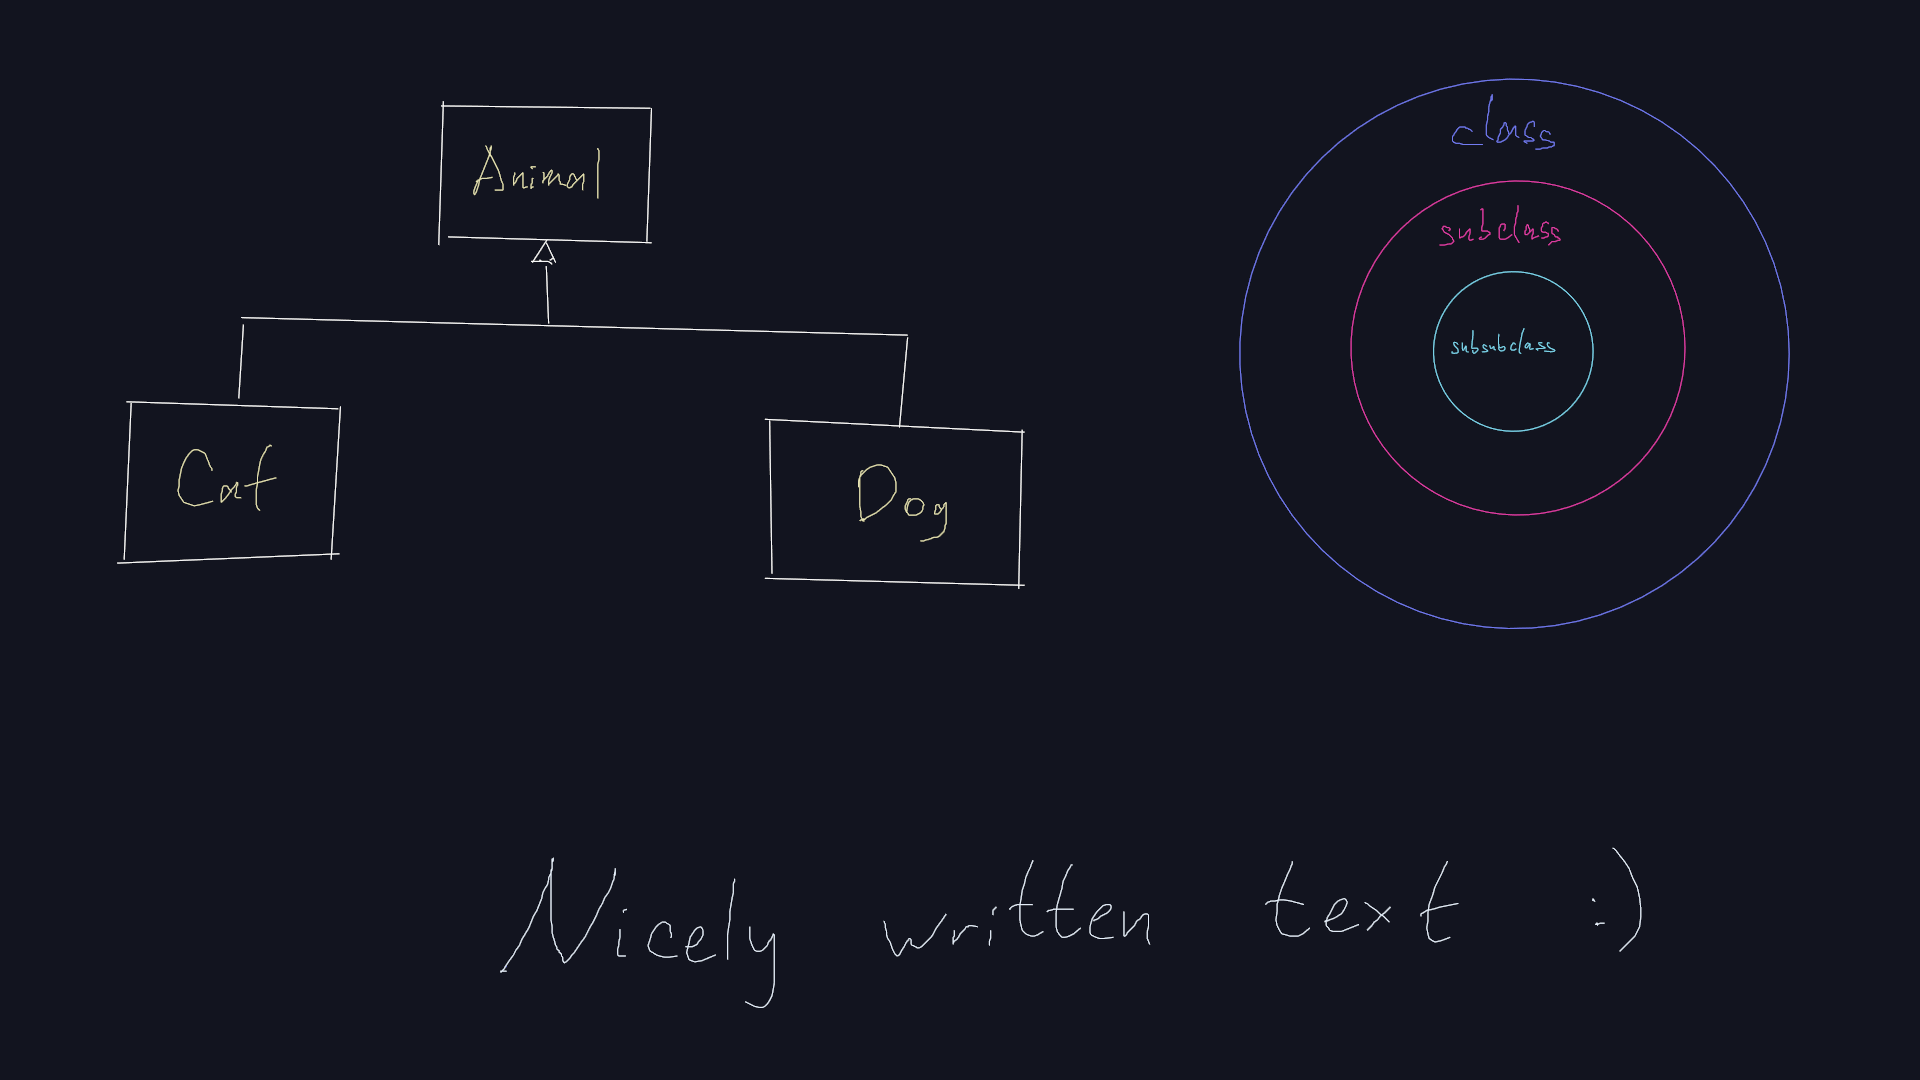 Animal
Cat
Dog
class
subclass
subsubclass
Nicely written text :)